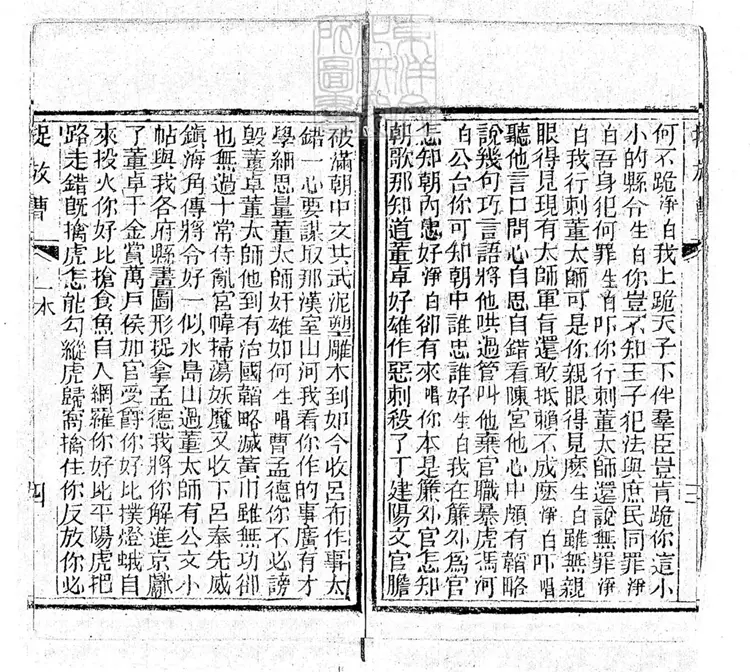 何不跪淨白我上跪天子下伴羣臣豈肯跪你這小
小的縣令生白你豈不知王子犯法與庶民同罪淨
白吾身犯何罪生白吓你行刺董太師還說無罪淨
白我行刺董太師可是你親眼得見麽生白雖無親
眼得見現有太師軍旨還敢抵賴不成麽淨白吓唱
聽他言口問心自思自錯看陳宮他心中頗有韜略
說幾句巧言語將他哄過管叫他棄官職暴虎馮河
白公台你可知朝中誰忠誰奸生白我在簾外為官
怎知朝內忠奸淨白卻有來唱你本是簾外官怎知
朝歌那知道董卓奸雄作惡刺殺了丁建陽文官膽
捉放曹
三
破滿朝中文共武泥塑雕木到如今收呂布作事太
錯一心要謀取那漢室山河我看你作的事廣有才
學細思量董太師奸雄如何生唱曹孟德你不必謗
毀董卓董太師他到有治國韜略滅黃巾雖無功卻
也無過十常侍亂宮幃掃蕩妖魔又收下呂奉先威
鎮海角傳將令好一似水島山過董太師有公文小
帖與我各府縣畫圖形捉拿孟德我將你解進京獻
了董卓千金賞萬戶侯加官受爵你好比撲燈蛾自
來投火你好比搶食魚自入網羅你好比平陽虎把
路走錯既擒虎怎能勾縱虎歸窩擒住你反放你必
捉放曹
四